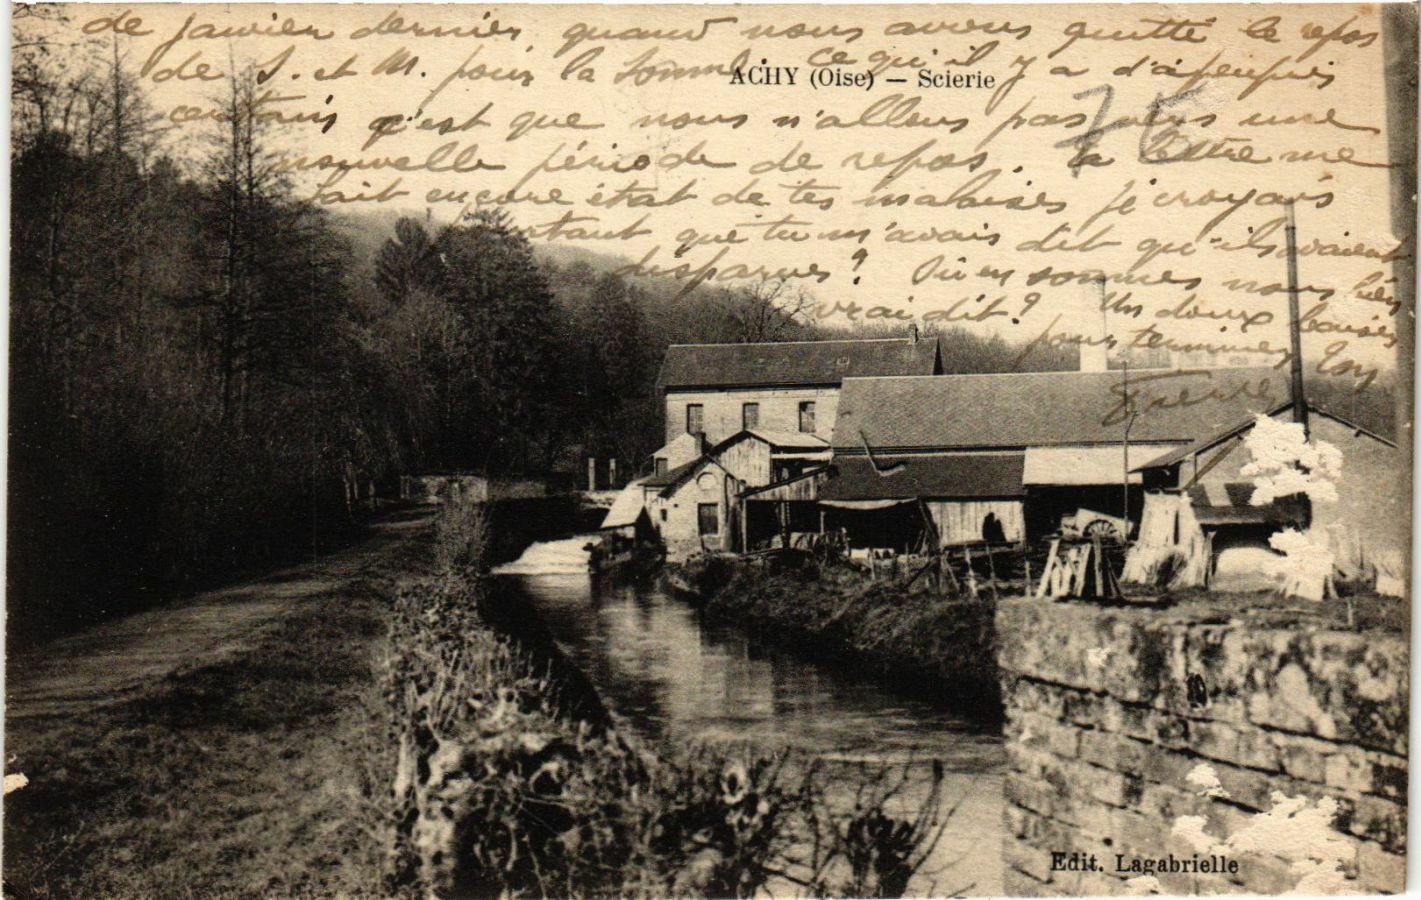 de janvier dernier, quand nous avions quitté le repos
de S. et M. pour la Somme. ce qu'il y a d'à peu près
ACHY (Oise) — Scierie
certain c'est que nous n'allons pas vers une
75
nouvelle période de repos. Ta lettre me
fait encore état de tes malaises je croyais
pourtant que tu m'avais dit qu'ils avaient
disparus? Où en sommes nous bien
vrai dit? Un doux baiser
pour terminer Ton
Pierre
Edit. Lagabrielle